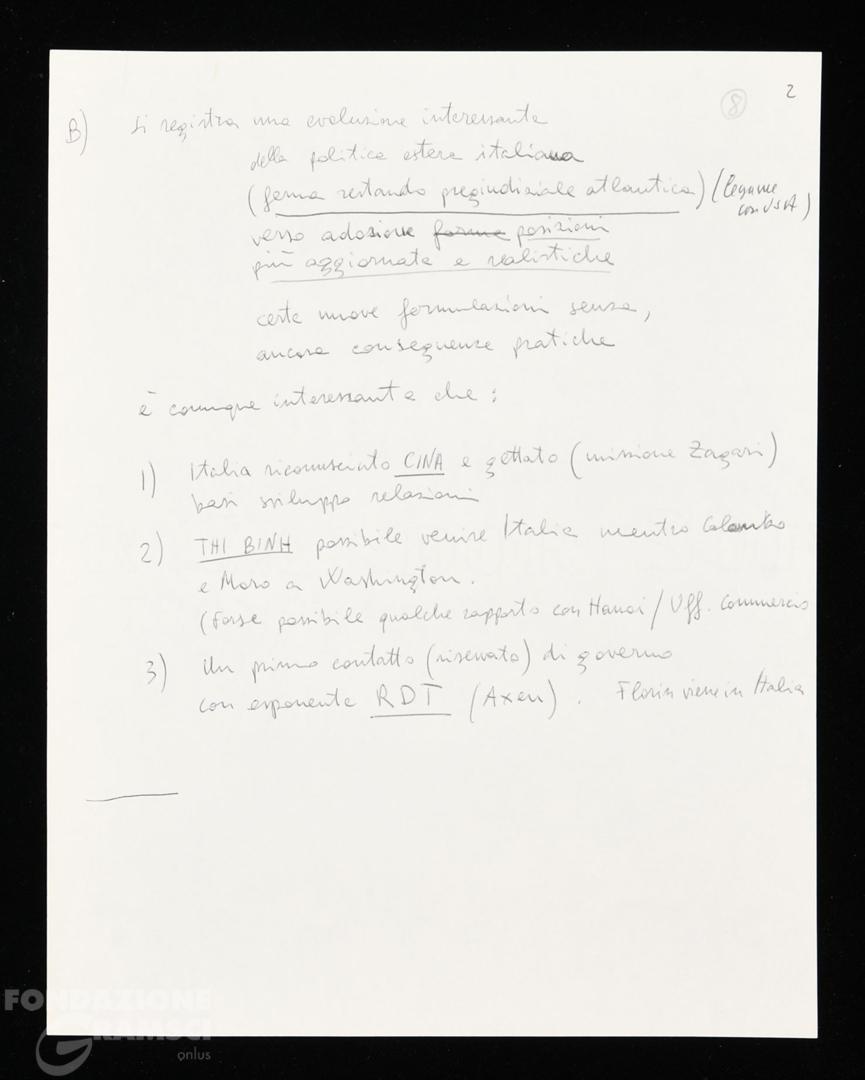 8
2
B) Si registra una evoluzione interessante
della politica estera italiana
(ferma restando pregiudiziale atlantica) (legame
con USA)
verso adozione forme posizioni
più aggiornate e realistiche
certe nuove formulazioni senza,
ancora conseguenze pratiche
è comunque interessante che:
1) Italia riconosciuto CINA e gettato (missione Zagari)
basi sviluppo relazioni
2) THI BINH possibile venire Italia mentre Colombo
e Moro a Washington.
(Forse possibile qualche rapporto con Hanoi / Uff. Commercio
3) Un primo contatto (riservato) di governo
con esponente RDT (Axen). Florin viene in Italia
FONDAZIONE
GRAMSCI
onlus